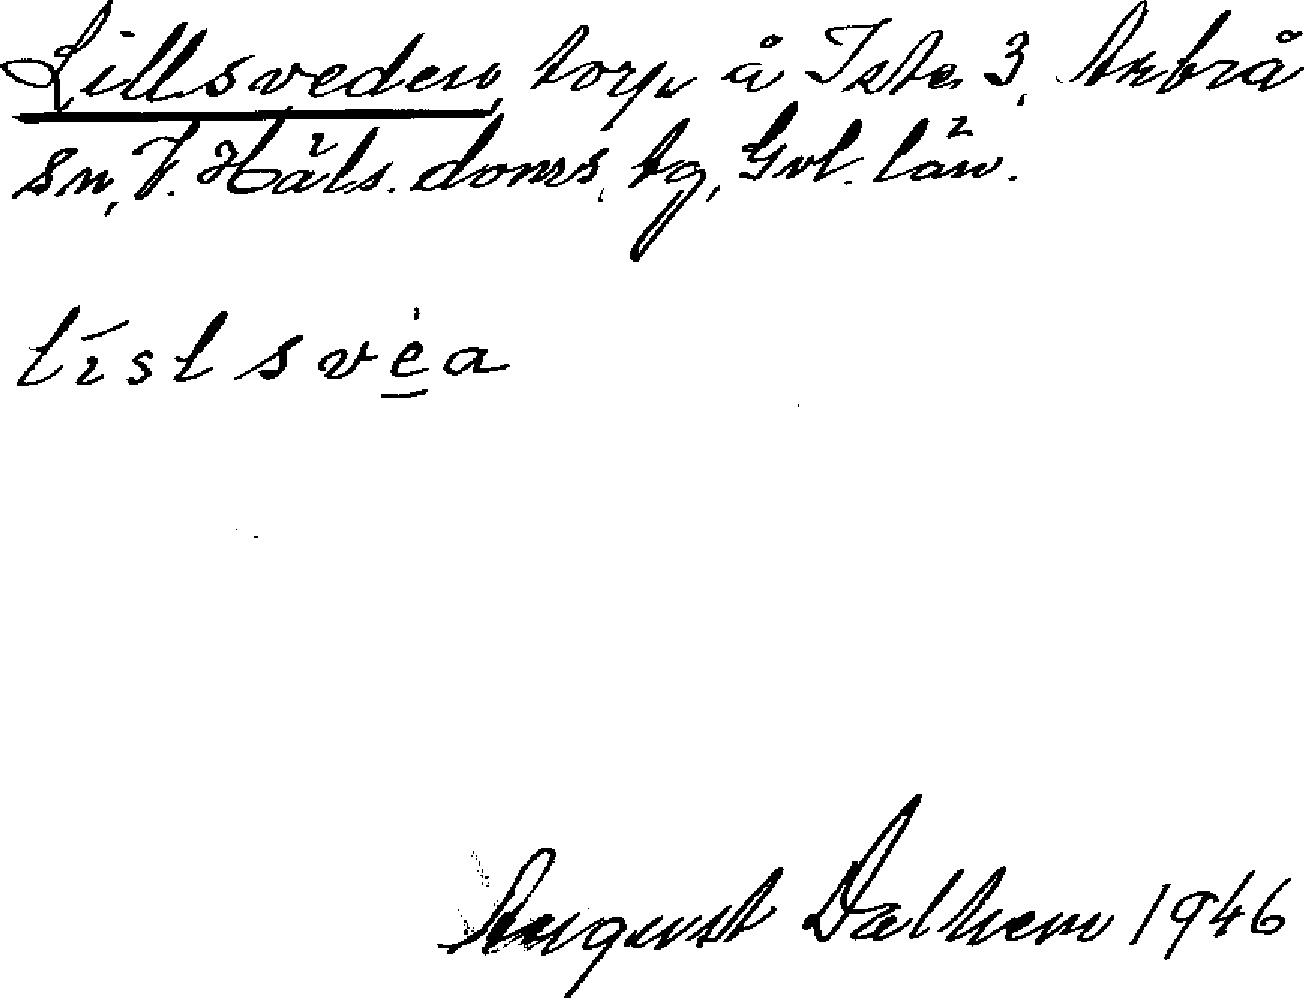 Lillsveden, torp å Iste 3, Arbrå
sn, V. Häls. doms. tg, Gvl. län.
August Dalhem 1946